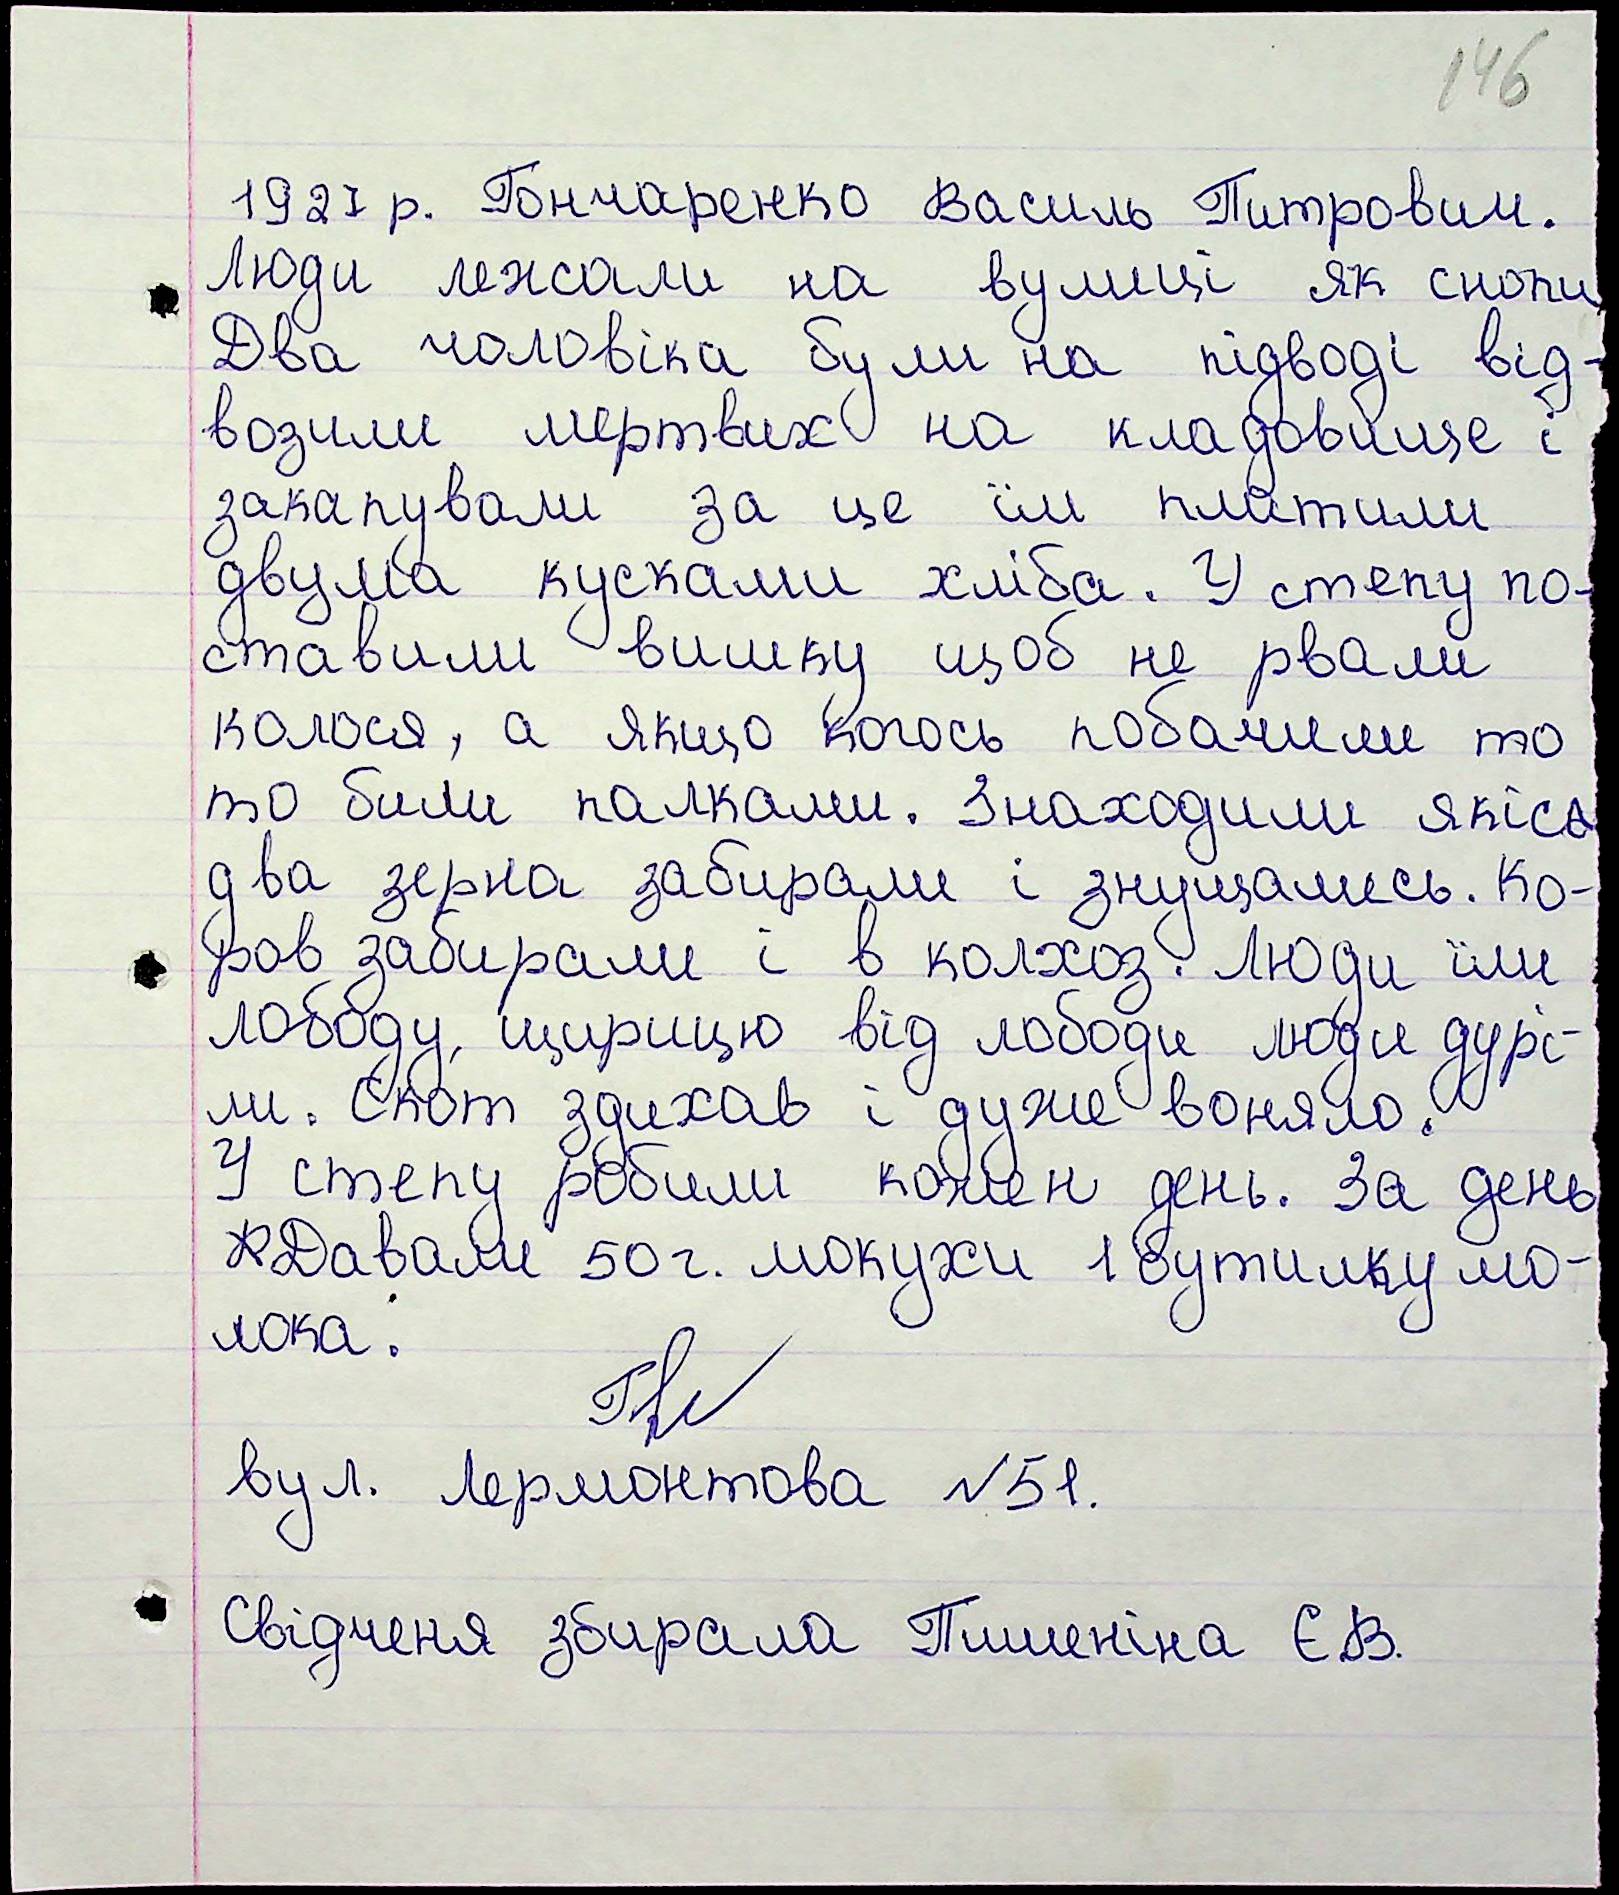 146
1927 р. Гончаренко Василь Питрович.
Люди лежали на вулиці як снопи
Два чоловіка були на підводі від-
возили мертвих на кладовище і
закапували за це їм платили
двума кусками хліба. У степу по-
ставили вишку щоб не рвали
колося, а якщо когось побачили то
то били палками. Знаходили якісь
два зерна забирали і знущались. Ко-
ров забирали і в колхоз. Люди їли
лободу, щирицю від лободи люди дурі-
ли. Скот здихав і дуже воняло.
У степу робили кожен день. За день
Давали 50 г. макухи 1 бутилку мо-
лока.
вул. Лермонтова №51.
Свідченя збирала Пишеніна Є.В.